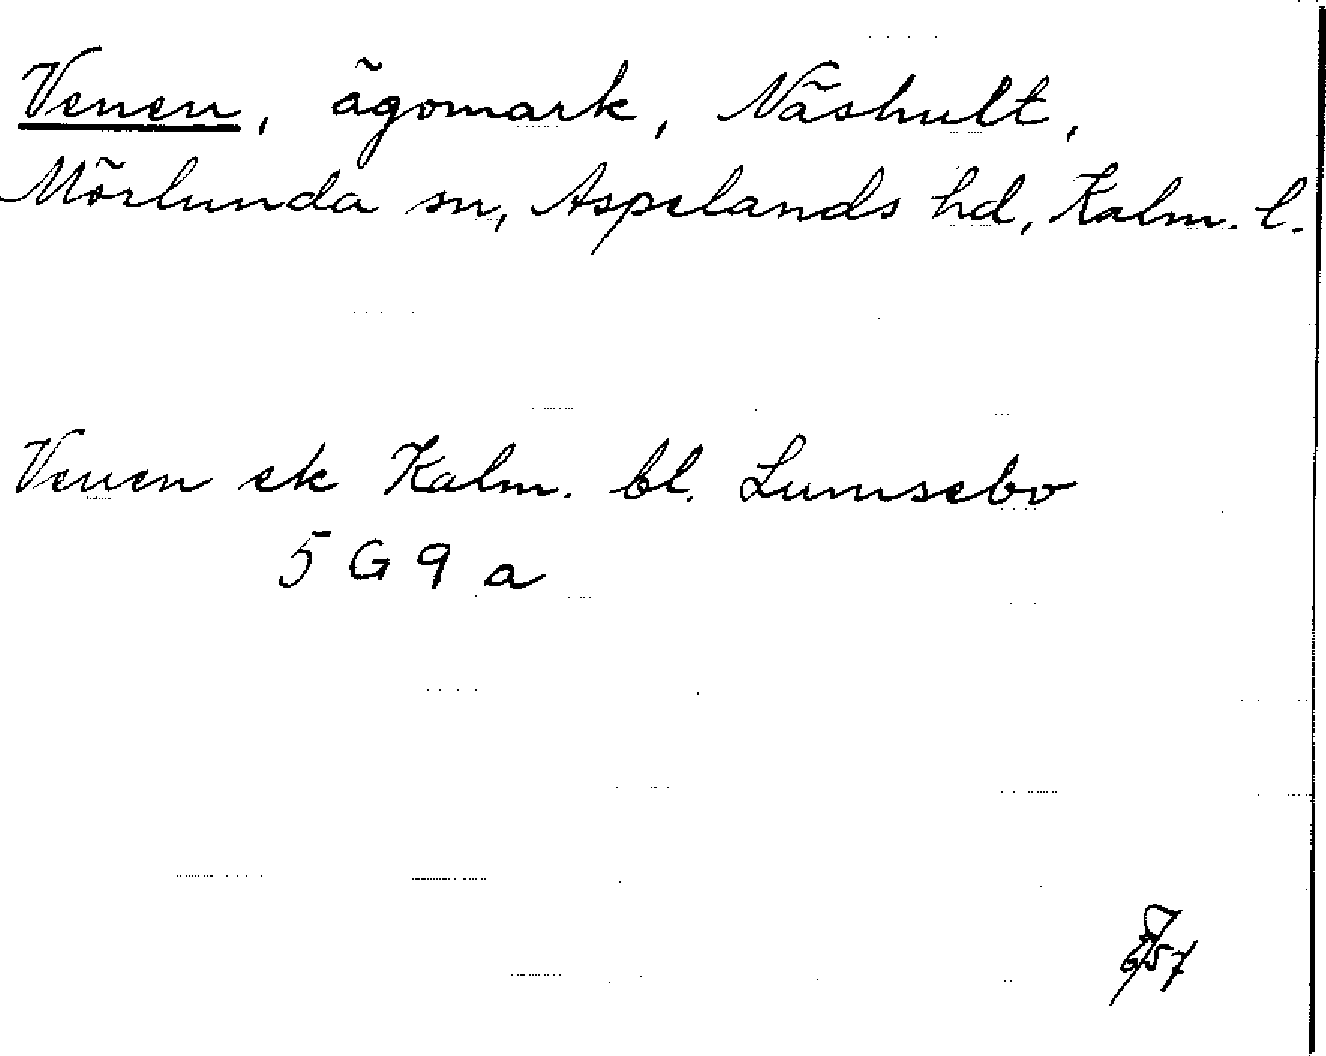 Venen, ägomark, Näshult,
Mörlunda sn, Aspelands hd, Kalm. l.
Venen ek Kalm. bl. Lumsebo
5 G 9 a